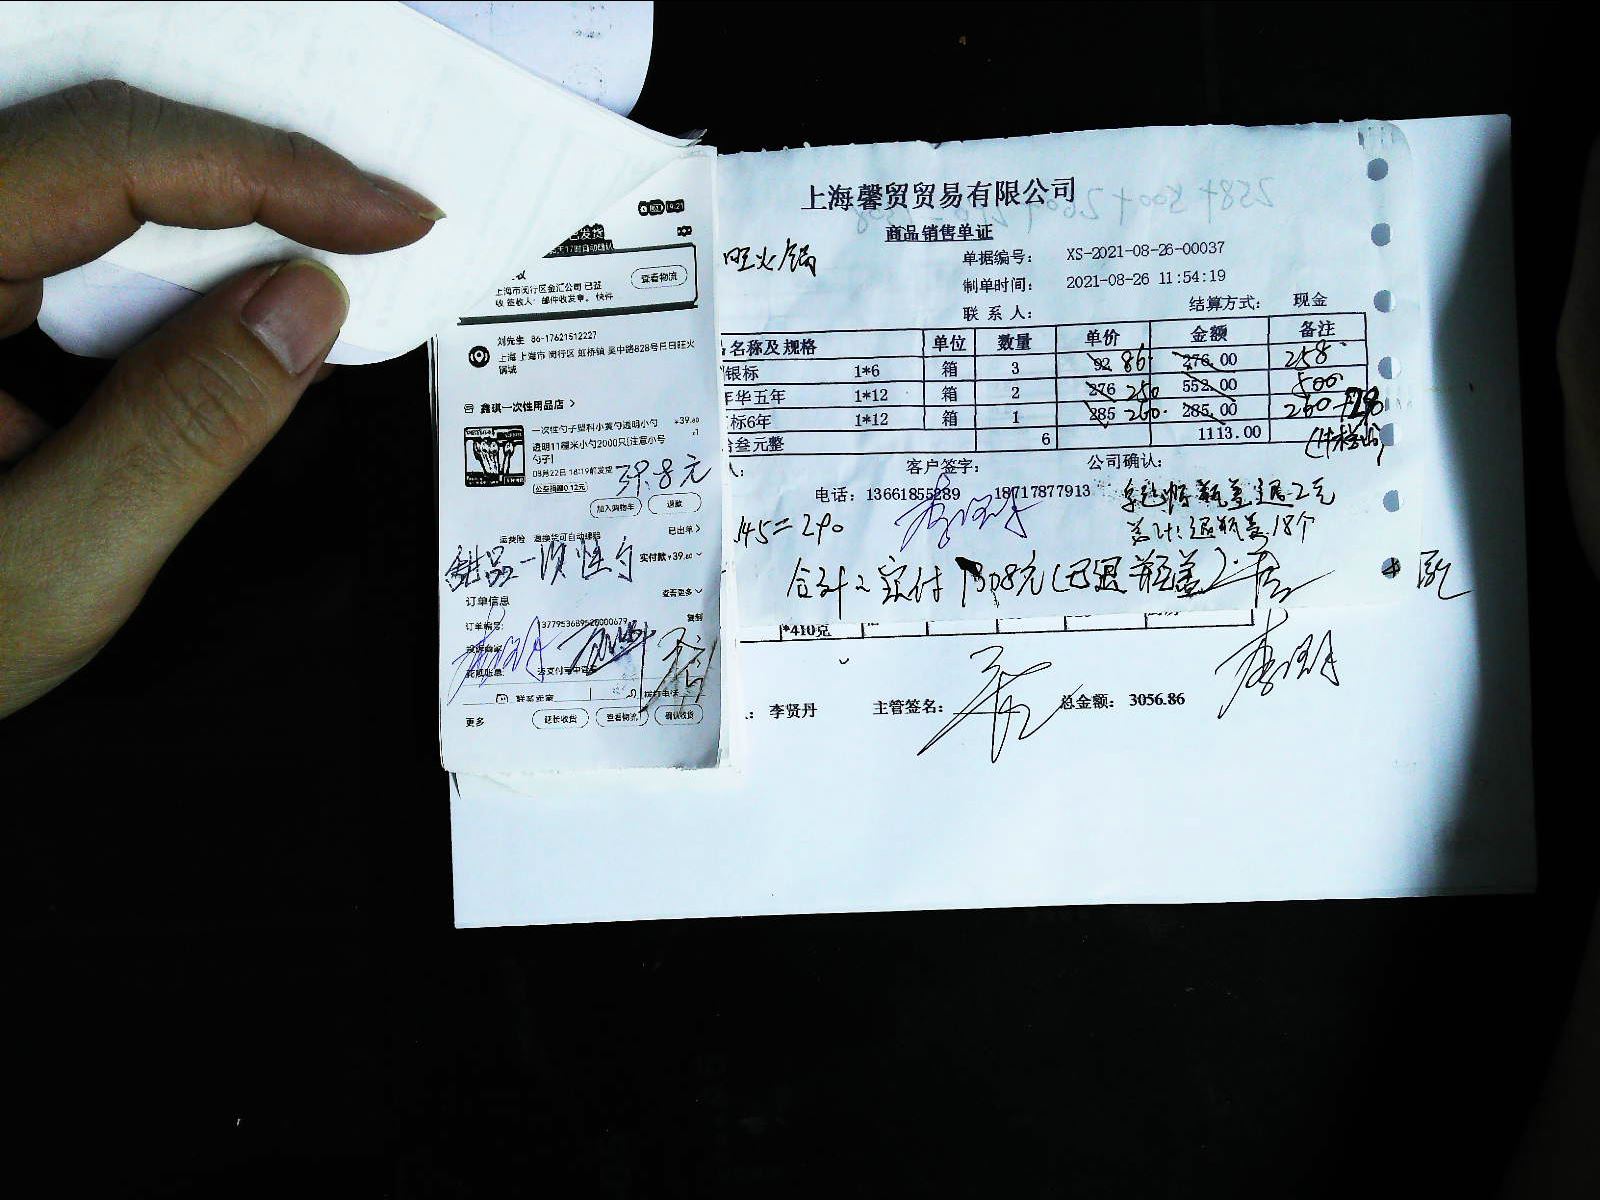 19:21
已发货
天17时自动确认
上海市闵行区金汇公司 已签
收 签收人: 邮件收发章, 快件
查看物流
刘先生 86-17621512227
上海 上海市 闵行区 虹桥镇 吴中路828号日日旺火
锅城
鑫琪一次性用品店 >
一次性勺子塑料小黄勺透明小勺 ¥39.80
透明11厘米小勺2000只[注意小号 x1
勺子]
08月22日 18:19前发货
公益捐赠0.12元
39.8元
加入购物车 退款
运费险 退换货可自动理赔 已出单 >
甜品一次性勺
实付款 ¥39.80
订单信息 查看更多
订单编号: 复制
更多 延长收货 查看物流 确认收货
上海馨贸贸易有限公司
商品销售单证
旺火锅
单据编号: XS-2021-08-26-00037
制单时间: 2021-08-26 11:54:19
联 系 人:
结算方式: 现金
名称及规格 单位 数量 单价 金额 备注
银标 1*6 箱 3 92 86 276.00 258
年华五年 1*12 箱 2 276 250 552.00 500
标6年 1*12 箱 1 285 260 285.00 260
拾叁元整 6 1113.00
客户签字: 公司确认:
电话: 13661855289 18717877913
145=290
退瓶盖18个
合计:实付1308元(已退瓶盖)
*410克
李贤丹 主管签名: 总金额: 3056.86